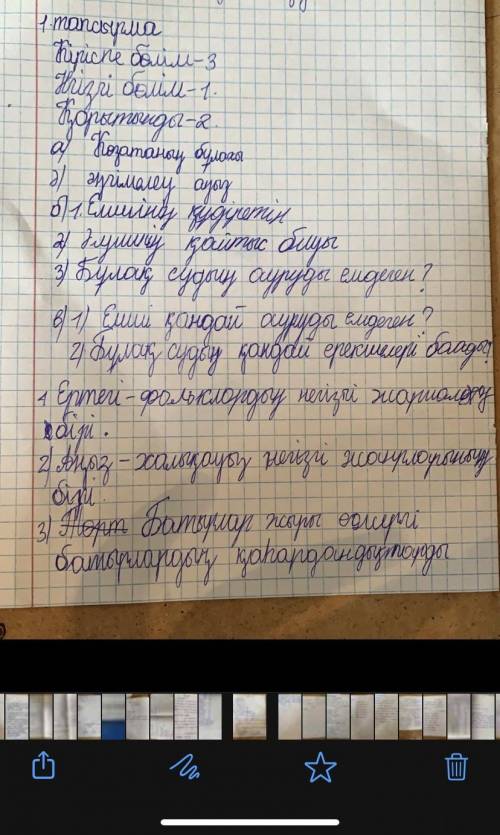 1. тапсырма
Кіріспе бөлім-3
Негізгі бөлім-1.
Қорытынды-2.
а) Қозатаның бұлағы
ә) әңгімелеу аңыз
б) 1. Емшінің құдіретін
2) Әулиенің қайтыс болуы
3) Бұлақ судың ауруды емдеген?
в) 1) Емші қандай ауруды емдеген?
2) Бұлақ судың қандай ерекшелері болады?
1 Ертегі-фольклордың негізгі
бірі.
2) Аңыз-халықауыз негізгі жанрларының
бірі
3) Батырлар жыры
батырлардың қаһармандықтарды